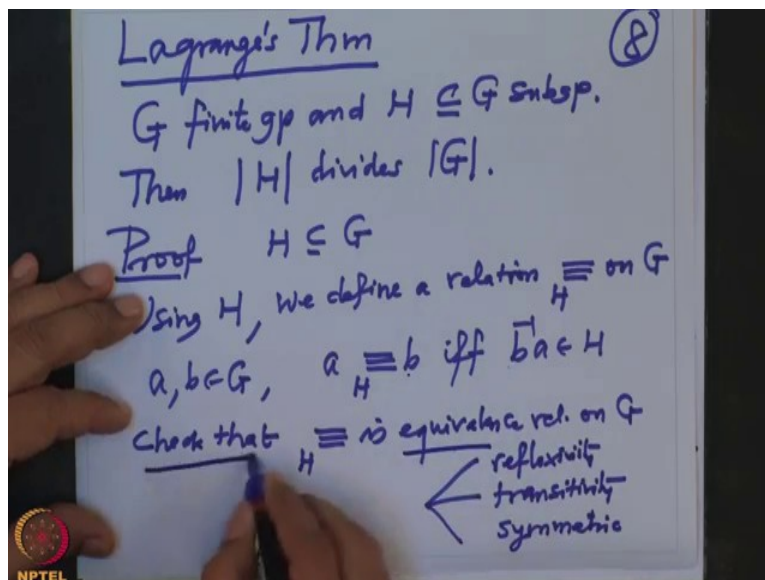 Lagrange's Thm
8
G finite gp and H ⊆ G subgp.
Then |H| divides |G|.
Proof H ⊆ G
Using H, We define a relation ≡_H on G
a, b ∈ G, a ≡_H b iff b⁻¹a ∈ H
Check that ≡_H is equivalence rel. on G
reflexivity
transitivity
symmetric
NPTEL